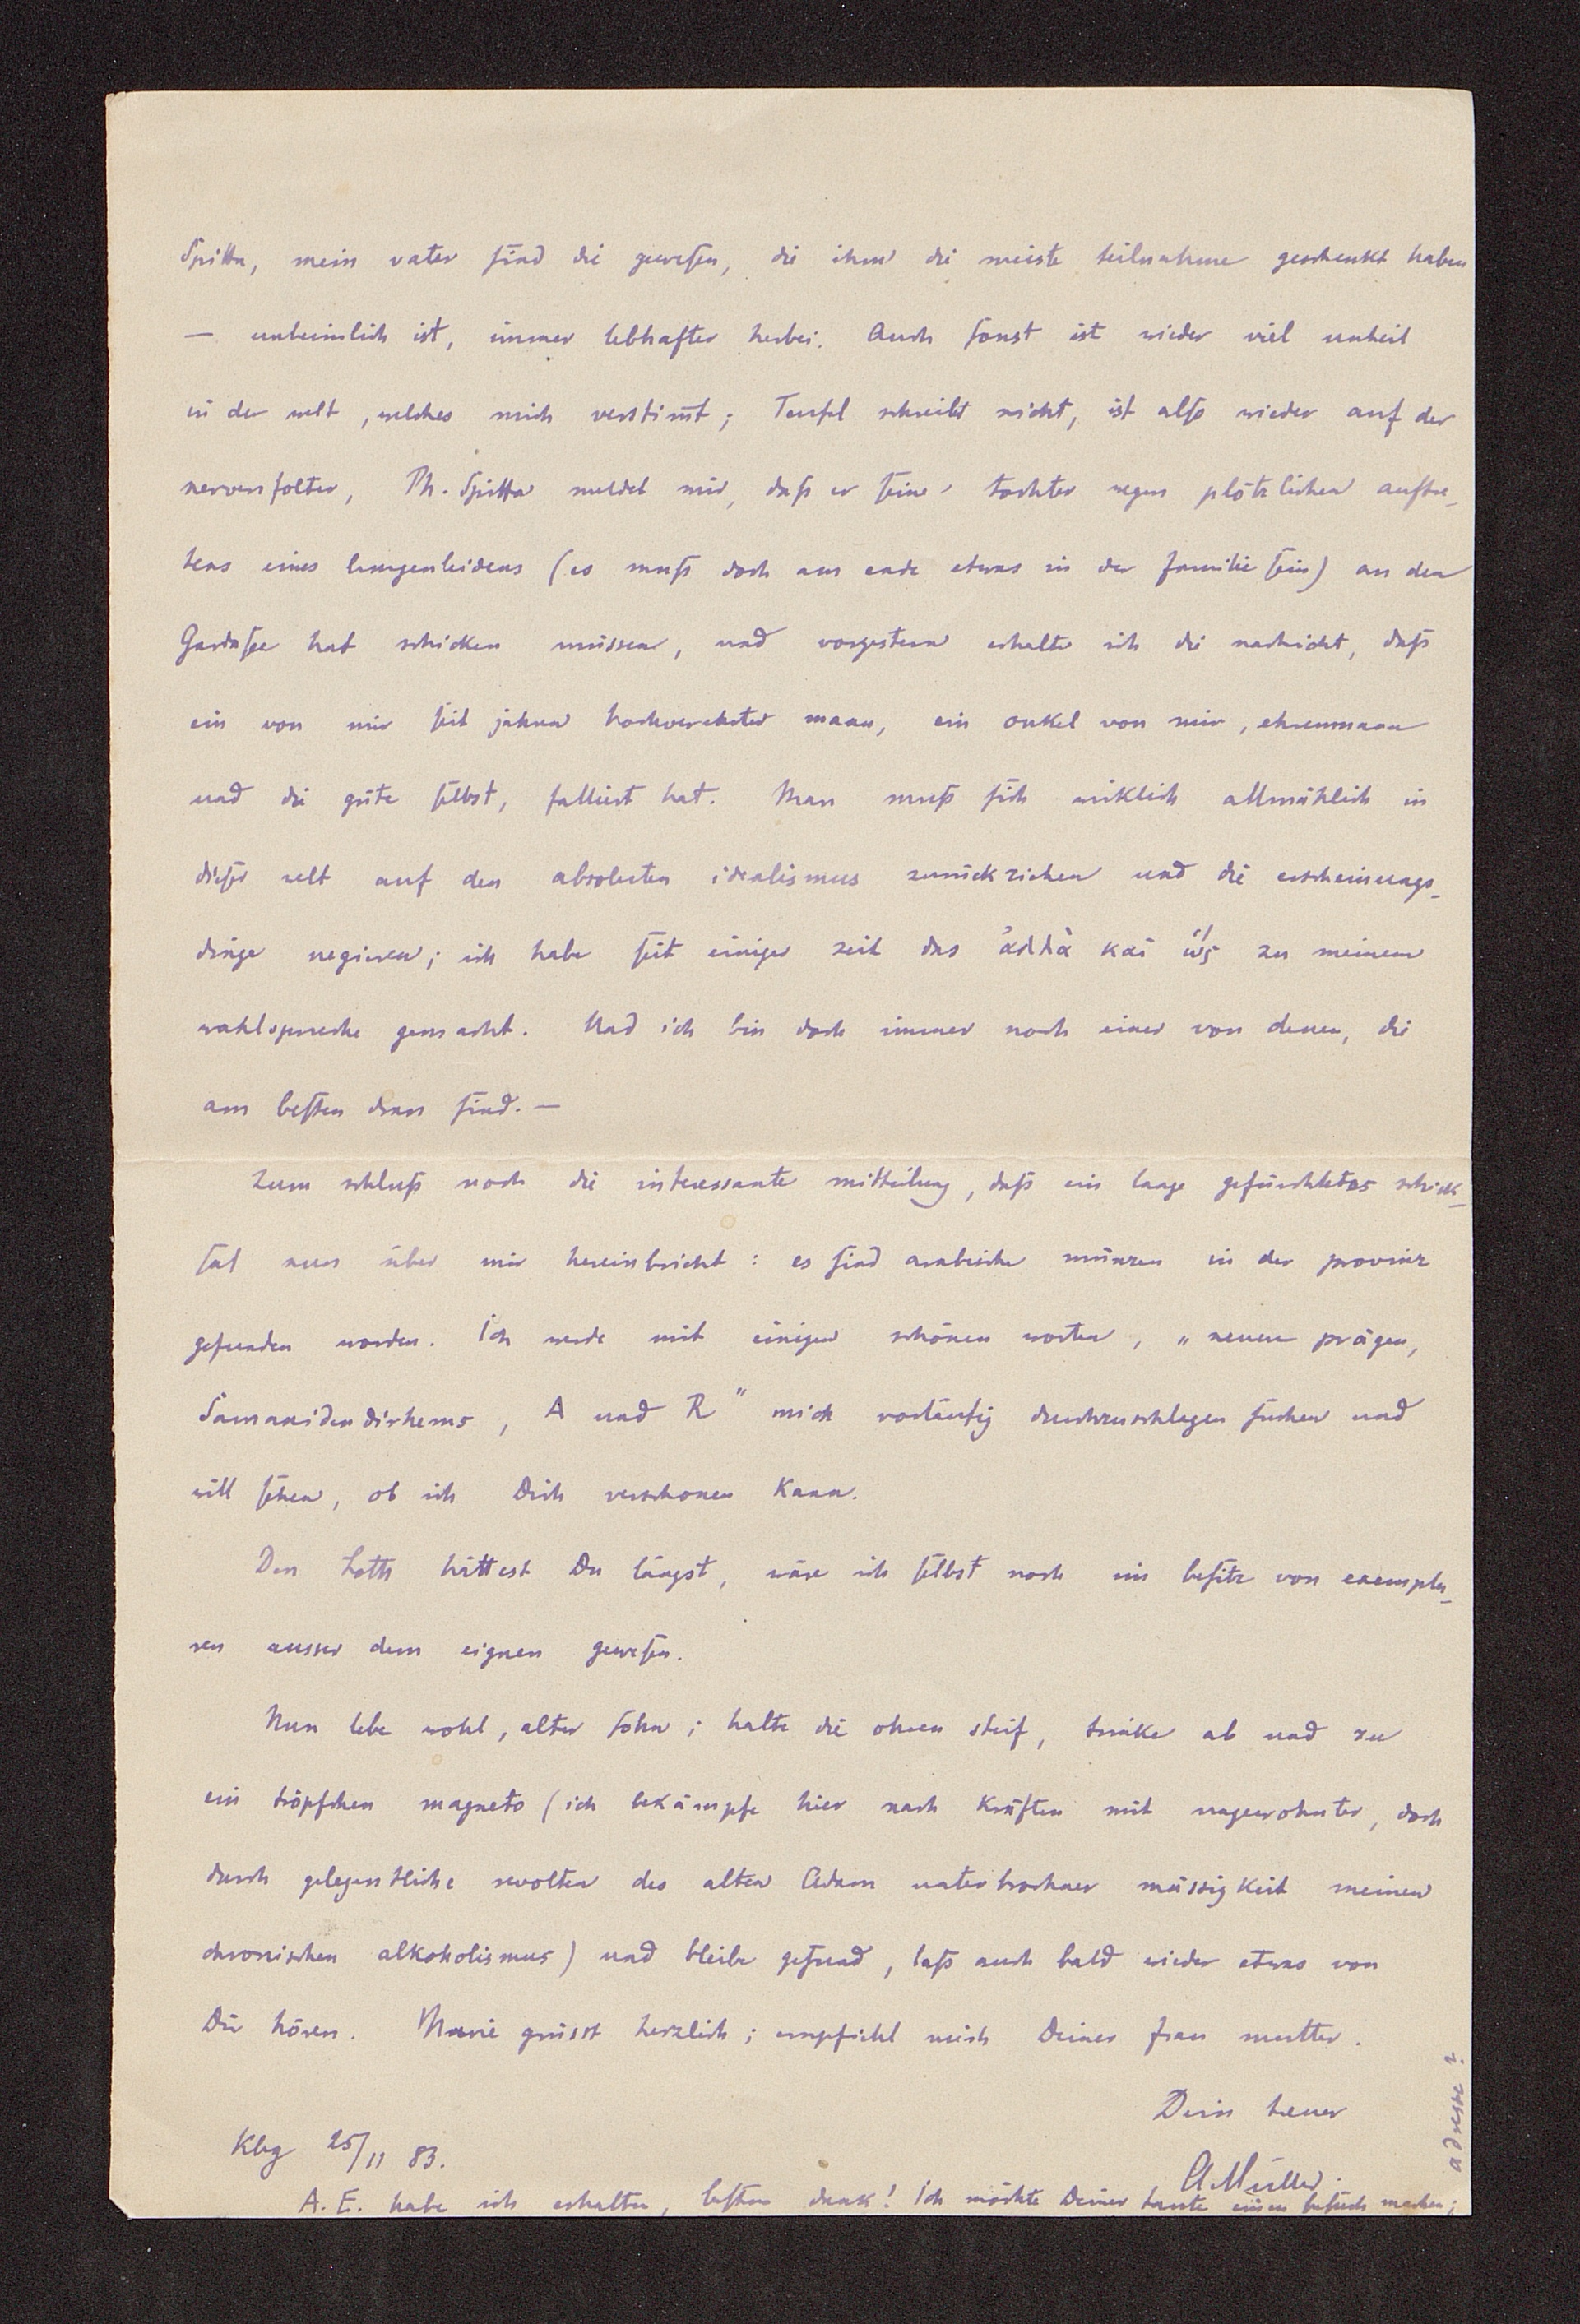 Spitta, mein vater ſind die geweſen, die ihm die meiste teilnahme geschenkt haben
— unheimlich ist, immer lebhafter herbei. Auch ſonst ist wieder viel unheil
in der welt, welches mich verstim̅t; Teufel schreibt nicht, ist alſo wieder auf der
nervenfolter, Th. Spitta meldet mir, daſs er ſeine tochter wegen plötzlichen auftre-
tens eines lungenleidens (es muſs doch am ende etwas in der familie ſein) an den
Gardaſee hat schicken müssen, und vorgestern erhalte ich die nachricht, daſs
ein von mir ſeit jahren hochverehrter mann, ein onkel von mir, ehrenmann
und die güte ſelbst, falliert hat. Man muſs ſich wirklich allmählich in
dieſer welt auf den absoluten idealismus zurückziehen und die erscheinungs-
dinge negieren; ich habe ſeit einiger zeit das ἀλλὰ καὶ ὥς zu meinem
wahlspruche gemacht. Und ich bin doch immer noch einer von denen, die
am beſten dran ſind. —
Zum schluſs noch die interessante mitteilung, daſs ein lange gefürchtetes schick-
ſal nun über mir hereinbricht: es ſind arabische münzen in der provinz
gefunden worden. Ich werde mit einigen schönen worten, „ neuere prägen,
Samanidendirhems, A und R " mich vorläufig durchzuschlagen ſuchen und
will ſehen, ob ich Dich verschonen kann.
Den Loth hättest Du längst, wäre ich ſelbst noch im beſitz von exempla-
ren ausser dem eignen geweſen.
Nun lebe wohl, alter ſohn; halte die ohren steif, trinke ab und zu
ein tröpfchen magneto (ich bekämpfe hier nach kräften mit ungewohnter, doch
durch gelegentliche revolten des alten Adam unterbrochner mässigkeit meinen
chronischen alkoholismus) und bleibe geſund, laſs auch bald wieder etwas von
Dir hören. Marie grüsst herzlich; empfiehl mich Deiner frau mutter.
Dein treuer
AMüller.
Kbg 25/11 83.
A. E. habe ich erhalten, beſten dank! Ich möchte Deiner tante einen beſuch machen;
adresse?